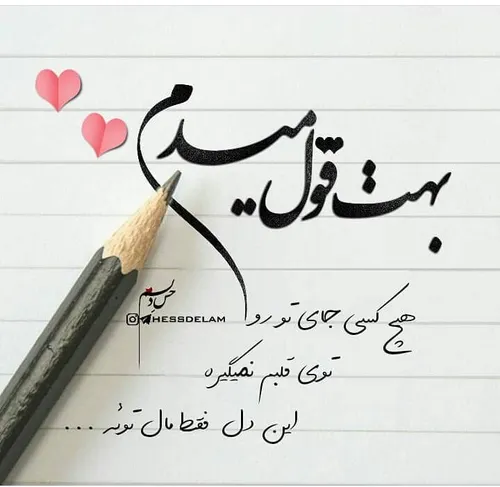 بهت قول میدم
هیچ کسی جای تو رو
توی قلبم نمیگیره
این دل فقط مال توئه ...
حس دلم
HESSDELAM